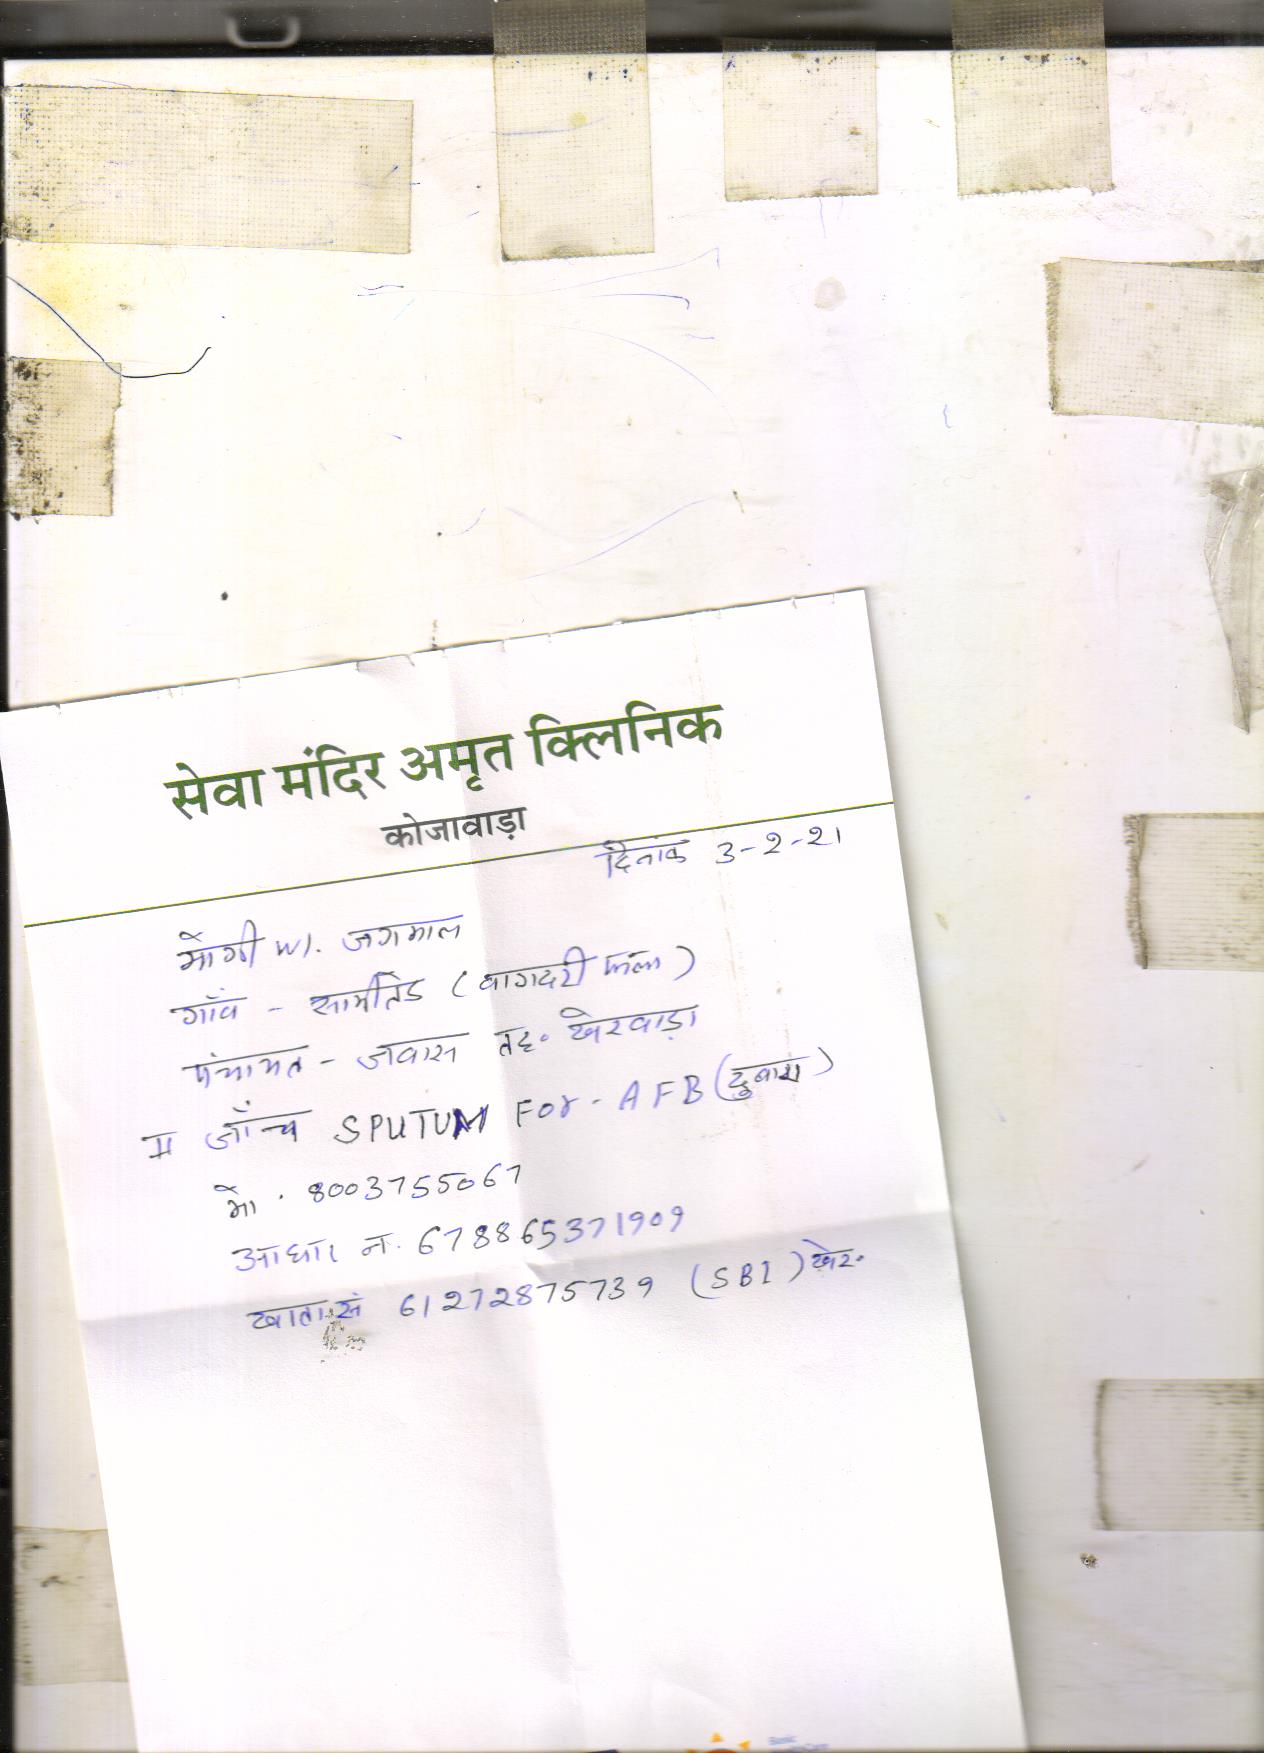 सेवा मंदिर अमृत क्लिनिक
कोजावाड़ा
दिनांक 3-2-21
मोगी w/. जगमाल
गाँव - (वागदरी फला)
पंचायत - जवास तह. खेरवाड़ा
जाँच SPUTUM For - AFB (दुबारा)
मो. 8003755067
आधार न. 678865371909
खाता सं 61272875739 (SBI) खेर.
Basic
HealthCare